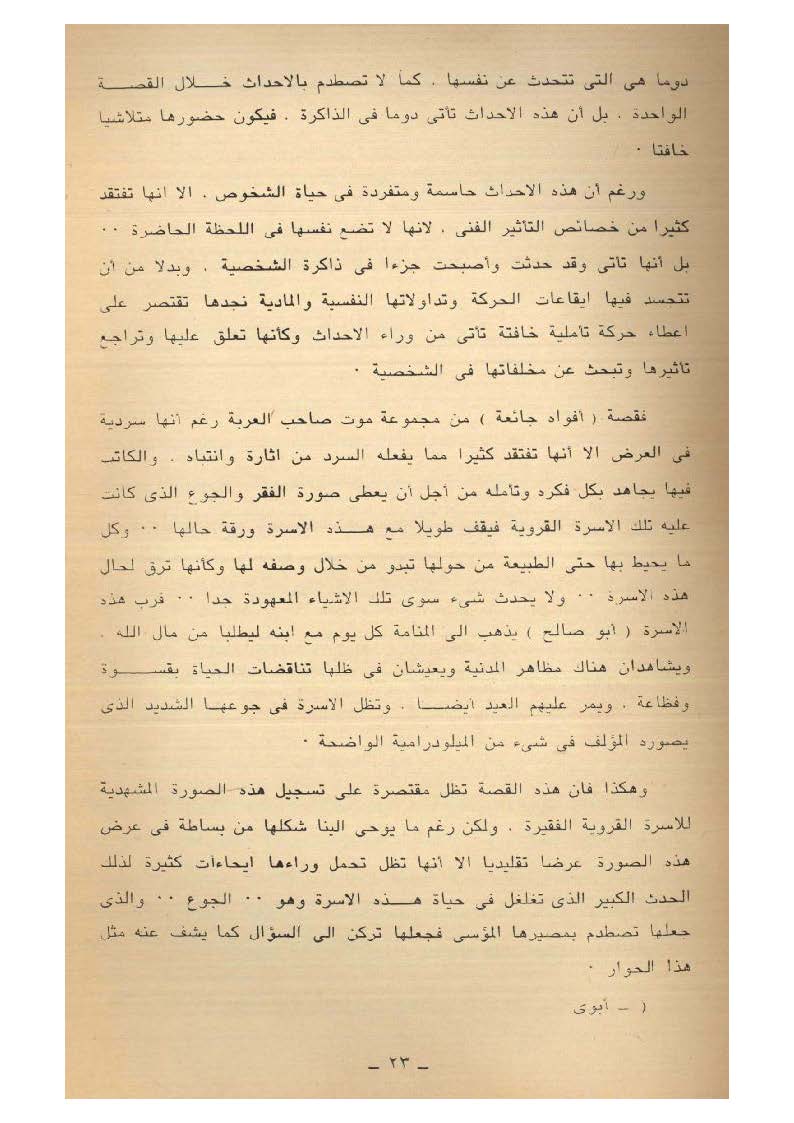 دوما هى التى تتحدث عن نفسها . كما لا تصطدم بالاحداث خـــلال القصـــة
الواحدة . بل أن هذه الاحداث تأتى دوما فى الذاكرة . فيكون حضورها متلاشيا
خافتا ٠
ورغم أن هذه الاحداث حاسمة ومتفردة فى حياة الشخوص . الا انها تفتقد
كثيرا من خصائص التأثير الفنى . لانها لا تضع نفسها فى اللحظة الحاضرة ٠٠
بل أنها تأتى وقد حدثت وأصبحت جزءا فى ذاكرة الشخصية . وبدلا من أن
تتجسد فيها ايقاعات الحركة وتداولاتها النفسية والمادية نجدها تقتصر على
اعطاء حركة تأملية خافتة تأتى من وراء الاحداث وكأنها تعلق عليها وتراجع
تاثيرها وتبحث عن مخلفاتها فى الشخصية ٠
فقصة ( أفواه جائعة ) من مجموعة موت صاحب العربة رغم أنها سردية
فى العرض الا أنها تفتقد كثيرا مما يفعله السرد من اثارة وانتباه . والكاتب
فيها يجاهد بكل فكره وتأمله من أجل أن يعطى صورة الفقر والجوع الذى كانت
عليه تلك الاسرة القروية فيقف طويلا مع هـــذه الاسرة ورقة حالها ٠٠ وكل
ما يحيط بها حتى الطبيعة من حولها تبدو من خلال وصفه لها وكأنها ترق لحال
هذه الاسرة ٠٠ ولا يحدث شىء سوى تلك الاشياء المعهودة جدا ٠٠ فرب هذه
الاسرة ( أبو صالح ) يذهب الى المنامة كل يوم مع ابنه ليطلبا من مال الله .
ويشاهدان هناك مظاهر المدنية ويعيشان فى ظلها تناقضات الحياة بقســـوة
وفظاعة . ويمر عليهم العيد أيضـــا . وتظل الاسرة فى جوعها الشديد الذى
يصوره المؤلف فى شىء من الميلودرامية الواضحة ٠
وهكذا فان هذه القصة تظل مقتصرة على تسجيل هذه الصورة المشهدية
للاسرة القروية الفقيرة . ولكن رغم ما يوحى الينا شكلها من بساطة فى عرض
هذه الصورة عرضا تقليديا الا أنها تظل تحمل وراءها ايحاءات كثيرة لذلك
الحدث الكبير الذى تغلغل فى حياة هـــذه الاسرة وهو ٠٠ الجوع ٠٠ والذى
جعلها تصطدم بمصيرها المؤسى فجعلها تركن الى السؤال كما يشف عنه مثل
هذا الحوار ٠
( ـ أبوى
ـ ٢٣ ـ